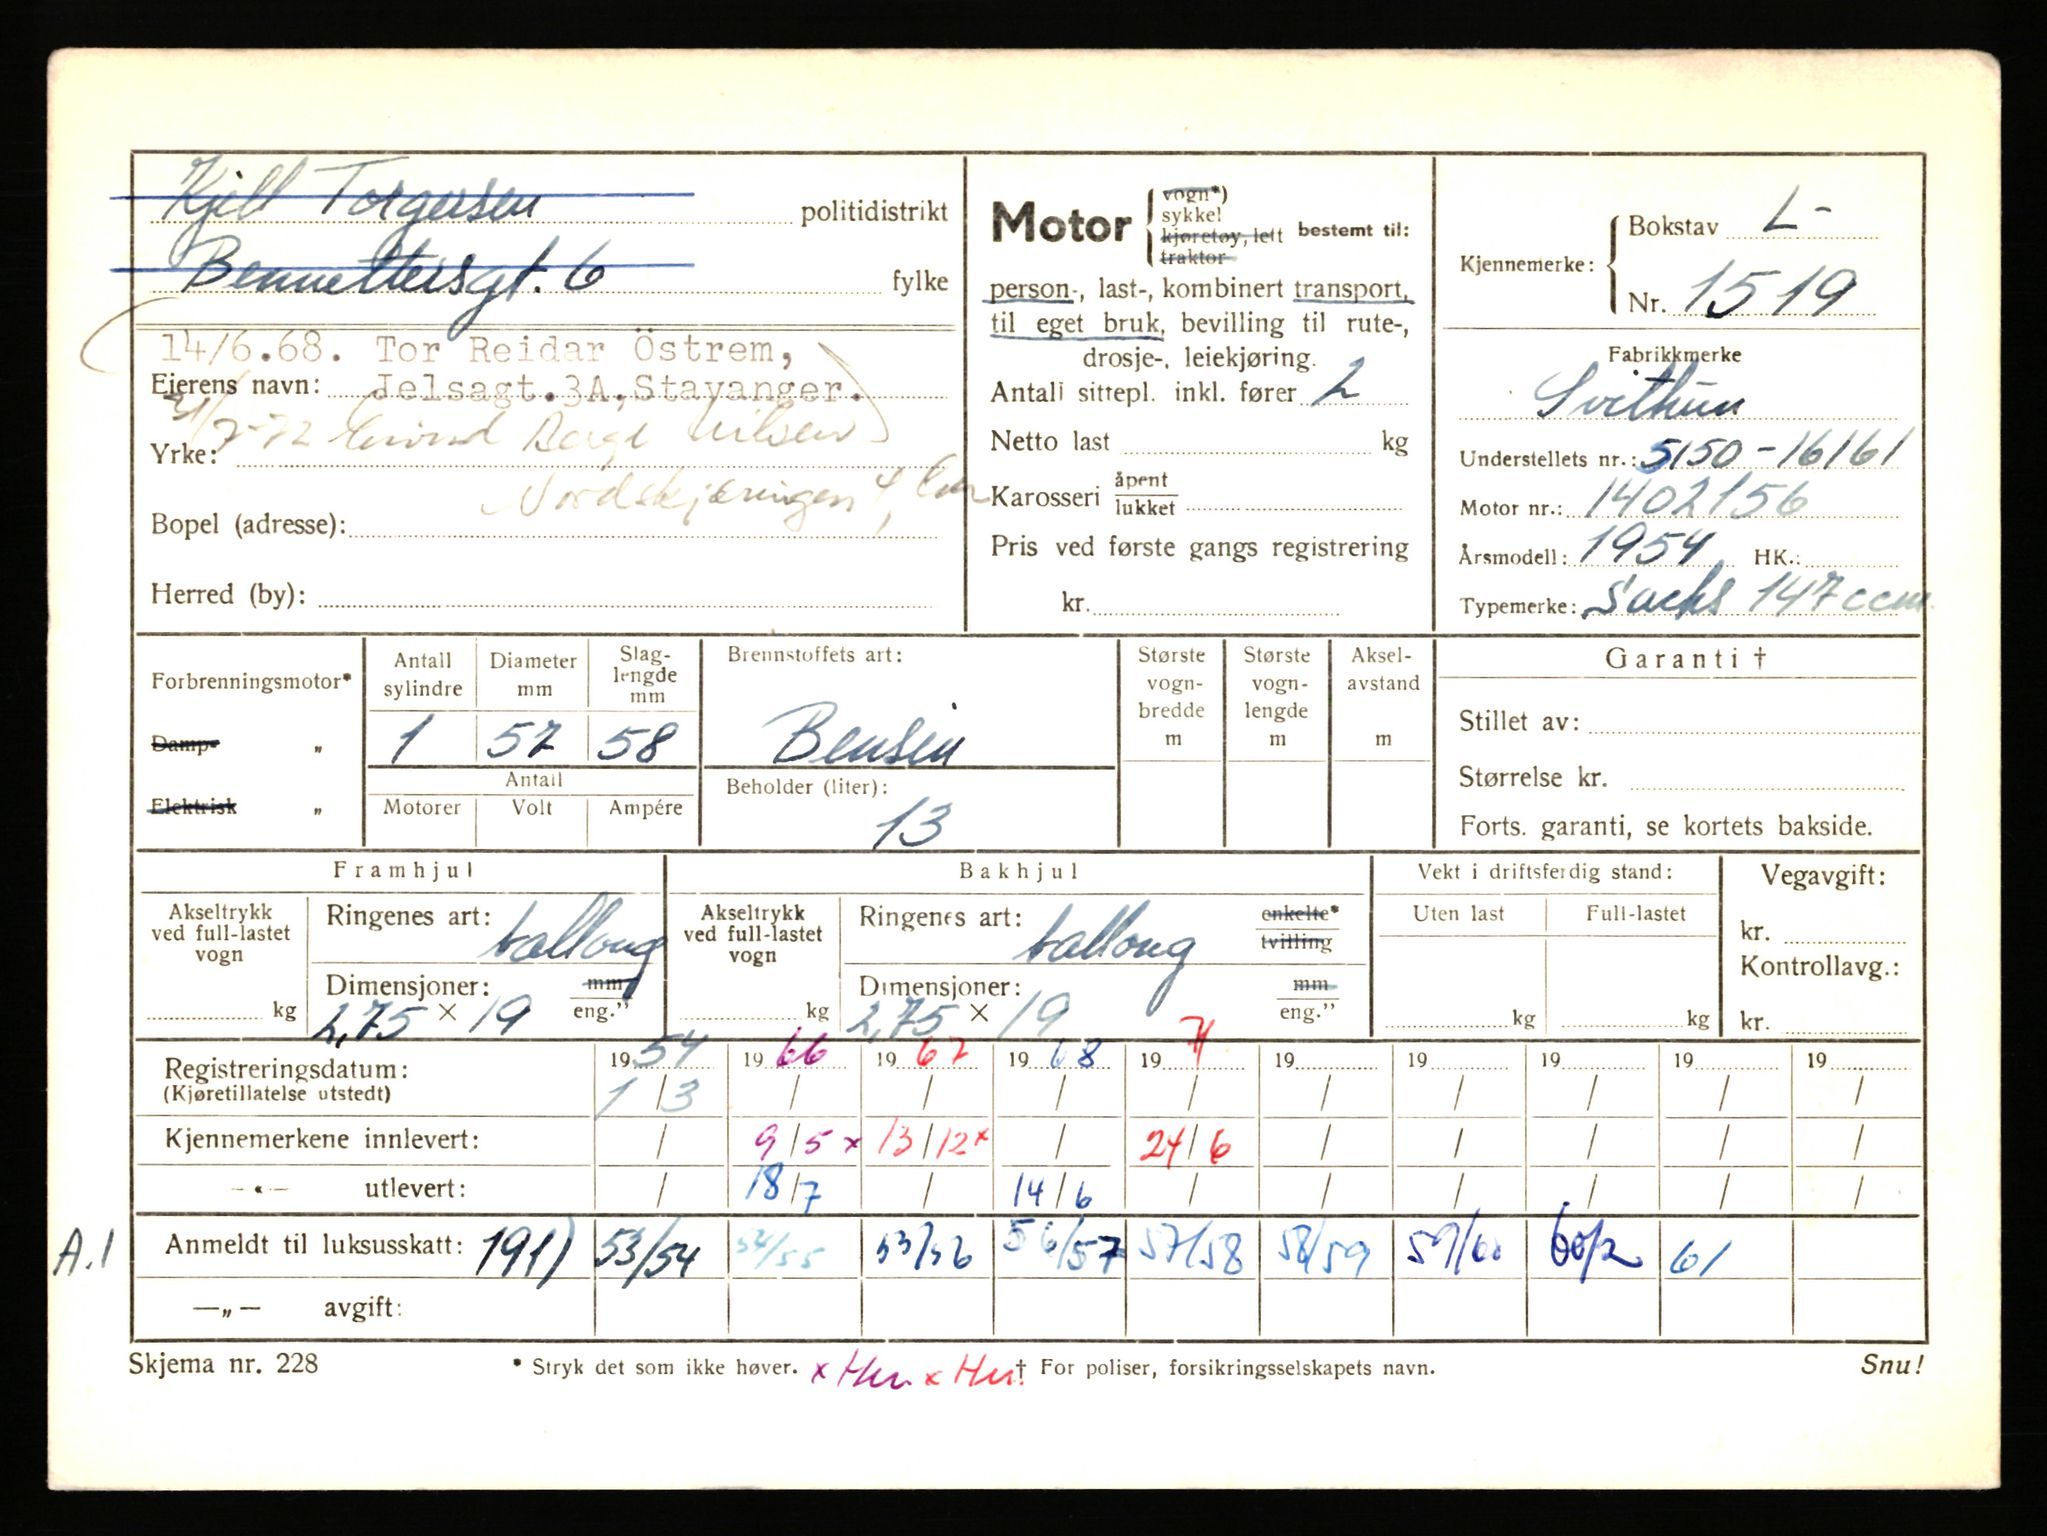 Kjell Torgersen politidistrikt
Bennettersgt. 6 fylke
14/6.68. Tor Reidar Östrem,
Eierens navn: Jelsagt.3A, Stavanger.
Yrke: Nilsen
Nordskjæringen 4,
Bopel (adresse):
Herred (by):
Motor vogn*) sykkel kjøretøy, lett traktor bestemt til:
person-, last-, kombinert transport,
til eget bruk, bevilling til rute-,
drosje-, leiekjøring.
Antall sittepl. inkl. fører 2
Netto last kg
Karosseri åpent lukket
Pris ved første gangs registrering
kr.
Kjennemerke: Bokstav L-
Nr. 1519
Fabrikkmerke
Svithun
Understellets nr.: 5150-16161
Motor nr.: 1402156
Årsmodell: 1954 HK.:
Typemerke: Sachs 147 ccm
Forbrenningsmotor*
Damp- „
Elektrisk „
Antall sylindre 1
Diameter mm 57
Slaglengde mm 58
Antall
Motorer Volt Ampére
Brennstoffets art:
Bensin
Beholder (liter):
13
Største vognbredde m
Største vognlengde m
Akselavstand m
Garanti †
Stillet av:
Størrelse kr.
Forts. garanti, se kortets bakside.
Framhjul
Akseltrykk ved full-lastet vogn kg
Ringenes art: ballong
Dimensjoner: mm
2,75 × 19 eng."
Bakhjul
Akseltrykk ved full-lastet vogn kg
Ringenes art: ballong enkelte* tvilling
Dimensjoner: mm
2,75 × 19 eng."
Vekt i driftsferdig stand:
Uten last Full-lastet
kg kg
Vegavgift:
kr.
Kontrollavg.:
kr.
Registreringsdatum: 1954 1966 1967 1968 1971 19 19 19 19 19
(Kjøretillatelse utstedt) 1/3 / / / / / / / / /
Kjennemerkene innlevert: / 9/5 x 13/12 x / 24/6 / / / / /
— „ — utlevert: / 18/7 / 14/6 / / / / / /
A.1 Anmeldt til luksusskatt: 191) 53/54 54/55 53/56 56/57 57/58 58/59 59/60 60/2 61
— „ — avgift:
Skjema nr. 228 * Stryk det som ikke høver. † For poliser, forsikringsselskapets navn. Snu!